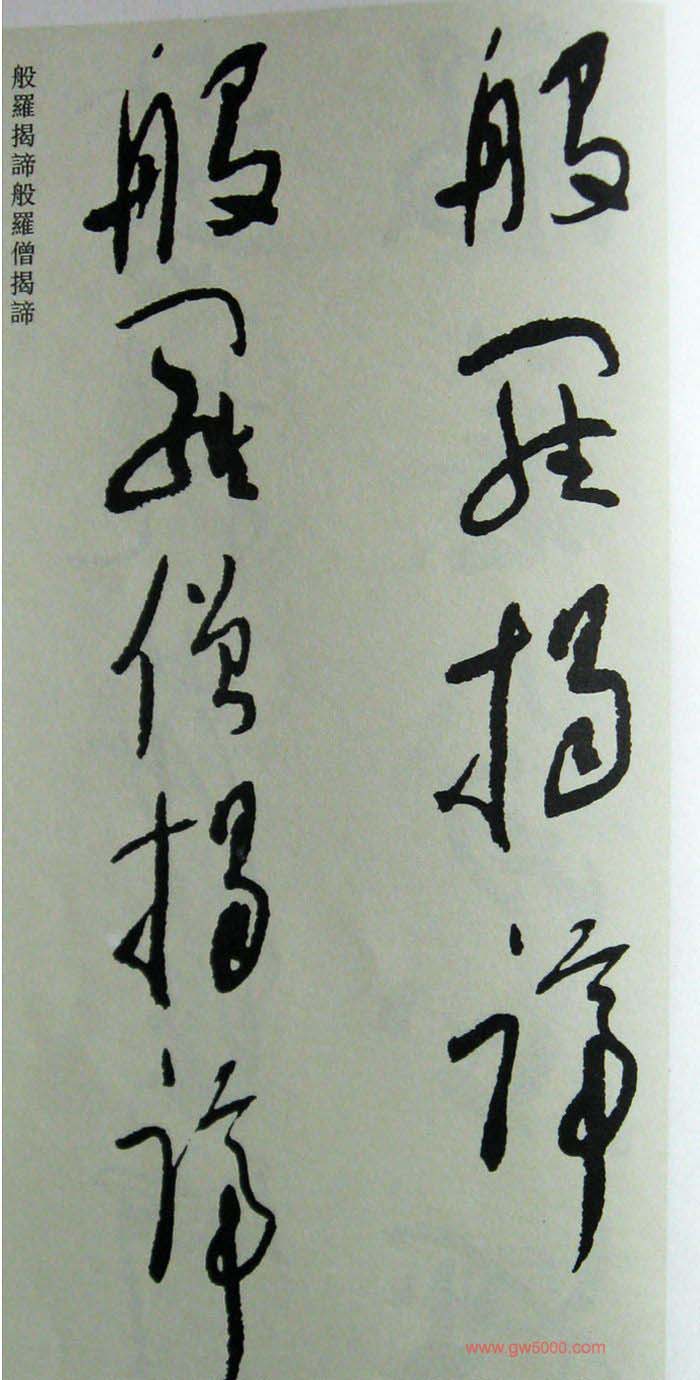 般羅揭諦
般羅僧揭諦
般羅揭諦般羅僧揭諦
www.gw5000.com